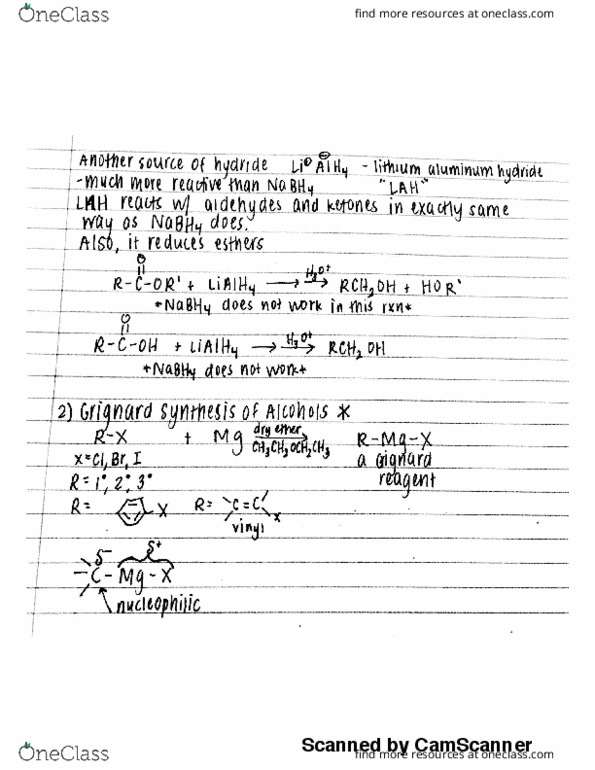 OneClass
find more resources at oneclass.com
Another source of hydride Li⊕ A⊖lH4 - lithium aluminum hydride
-much more reactive than NaBH4 "LAH"
LAH reacts w/ aldehydes and ketones in exactly same
way as NaBH4 does.
Also, it reduces esthers
O
R-C-OR' + LiAlH4 → H3O+ → RCH2OH + HOR'
*NaBH4 does not work in this rxn*
O
R-C-OH + LiAlH4 → H3O+ → RCH2OH
*NaBH4 does not work*
2) Grignard Synthesis of Alcohols *
R-X + Mg dry ether CH3CH2OCH2CH3 → R-Mg-X
X=Cl, Br, I a gignard
R=1°, 2°, 3° reagent
R= X R= C=C x
vinyl
δ- δ+
-C-Mg-X
nucleophilic
Scanned by CamScanner
OneClass
find more resources at oneclass.com